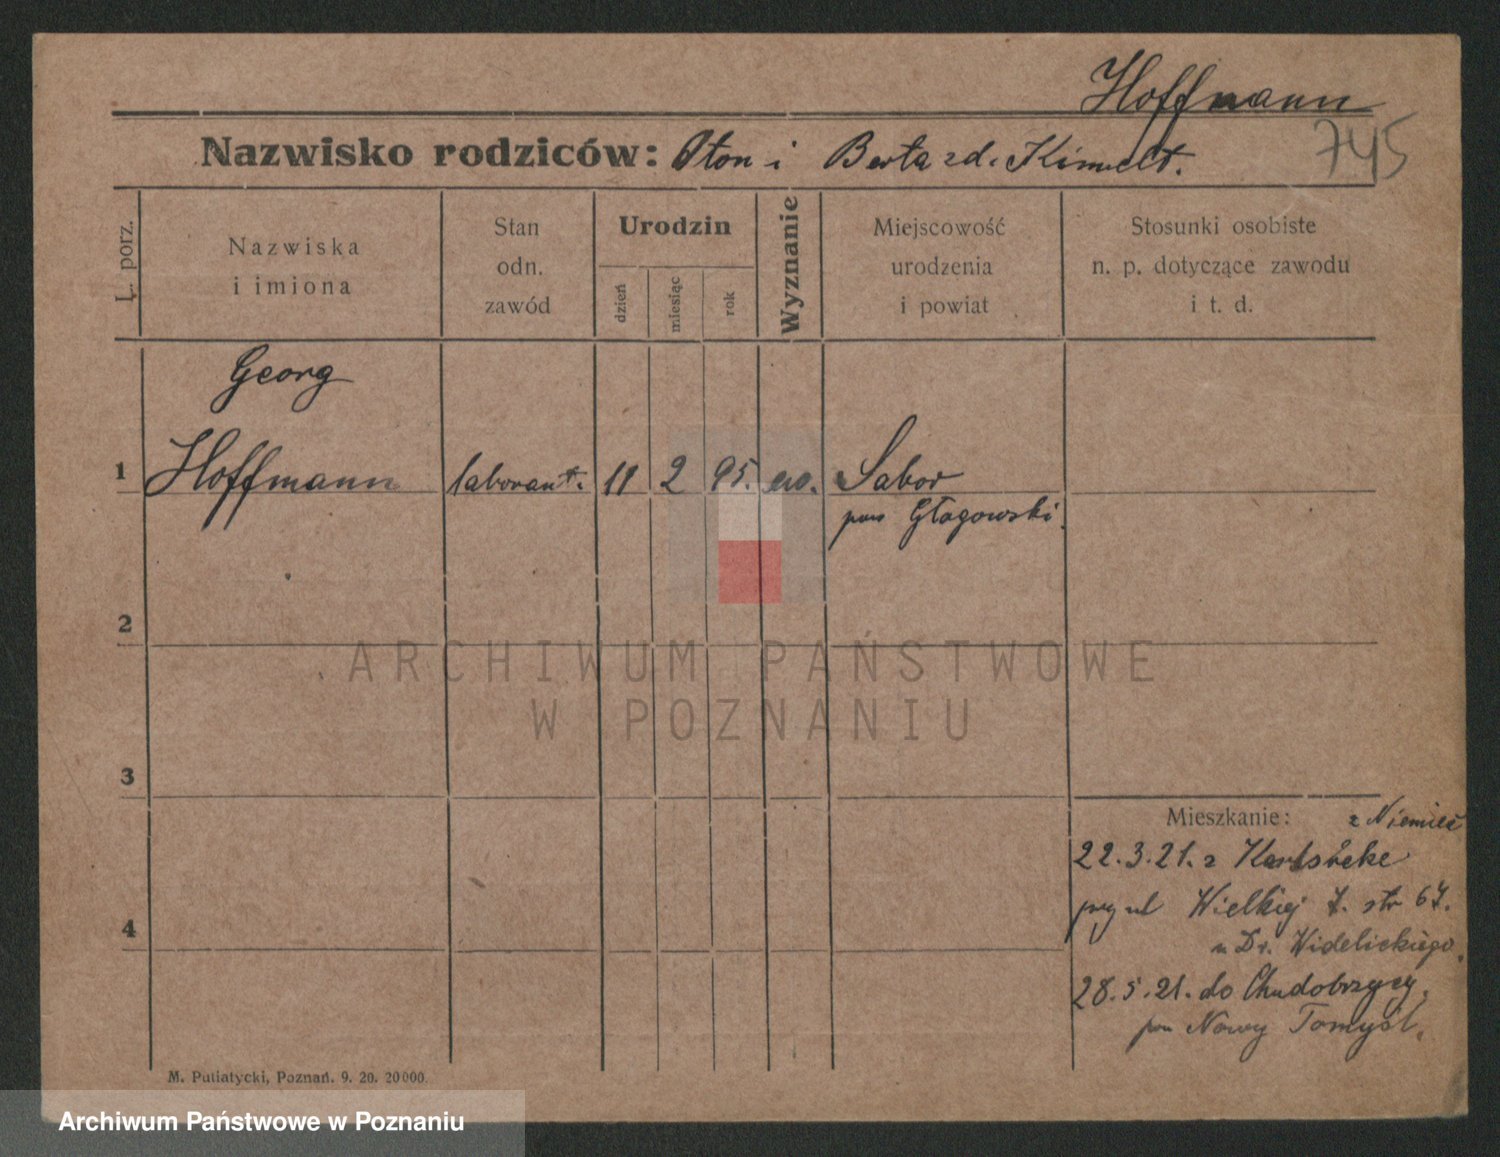 Hoffmann
745
Nazwisko rodziców: Oton i Berta zd.
L. porz.
Nazwiska i imiona
Stan odn. zawód
Urodzin
dzień
miesiąc
rok
Wyznanie
Miejscowość urodzenia i powiat
Stosunki osobiste n. p. dotyczące zawodu i t. d.
Georg
1 Hoffmann laborant. 11 2 95. ew. Sabor
pow Głogowski.
2
ARCHIWUM PAŃSTWOWE
W POZNANIU
3
Mieszkanie: z Niemiec
22.3.21. z
przy ul Wielkiej 7. str 67.
4
u Dr. Widelickiego.
28.5.21. do Chudobrzycy.
pow Nowy Tomyśl.
M. Putiatycki, Poznań. 9. 20. 20000.
Archiwum Państwowe w Poznaniu